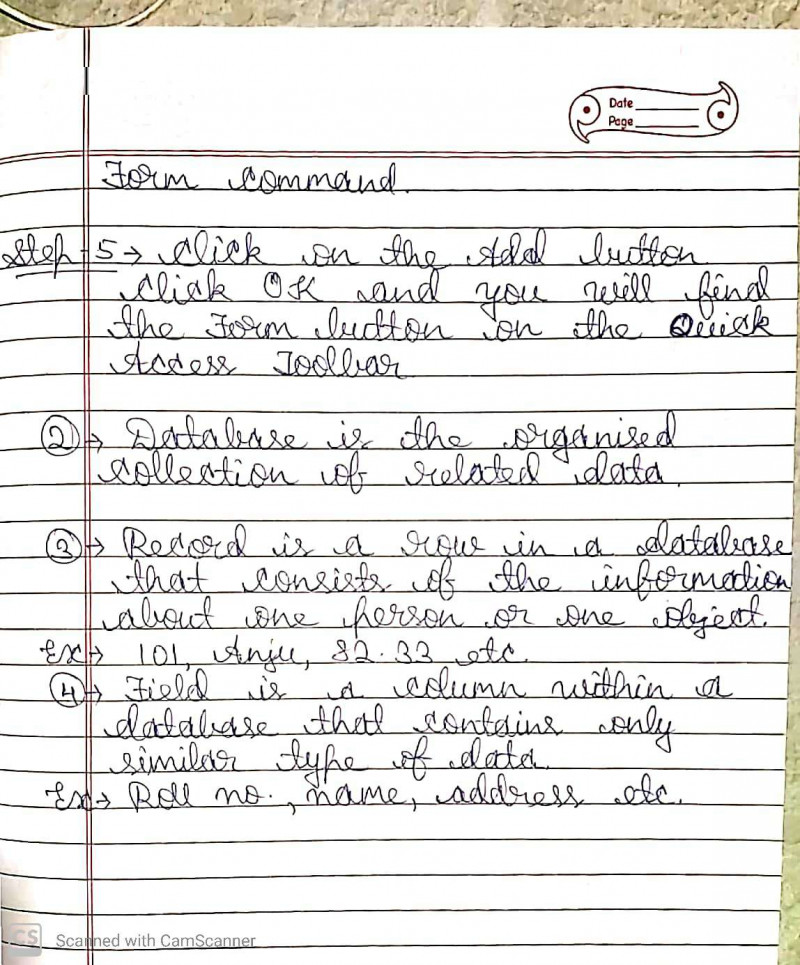 Date
Page
Form command.
Step-5→ Click on the Add button
Click OK and you will find
the Form button on the Quick
Access Toolbar
②→ Database is the organised
collection of related data.
③→ Record is a row in a database
that consists of the information
about one person or one object.
Ex→ 101, Anju, 82.33 etc.
④→ Field is a column within a
database that contains only
similar type of data.
Ex→ Roll no., name, address etc.
CS Scanned with CamScanner